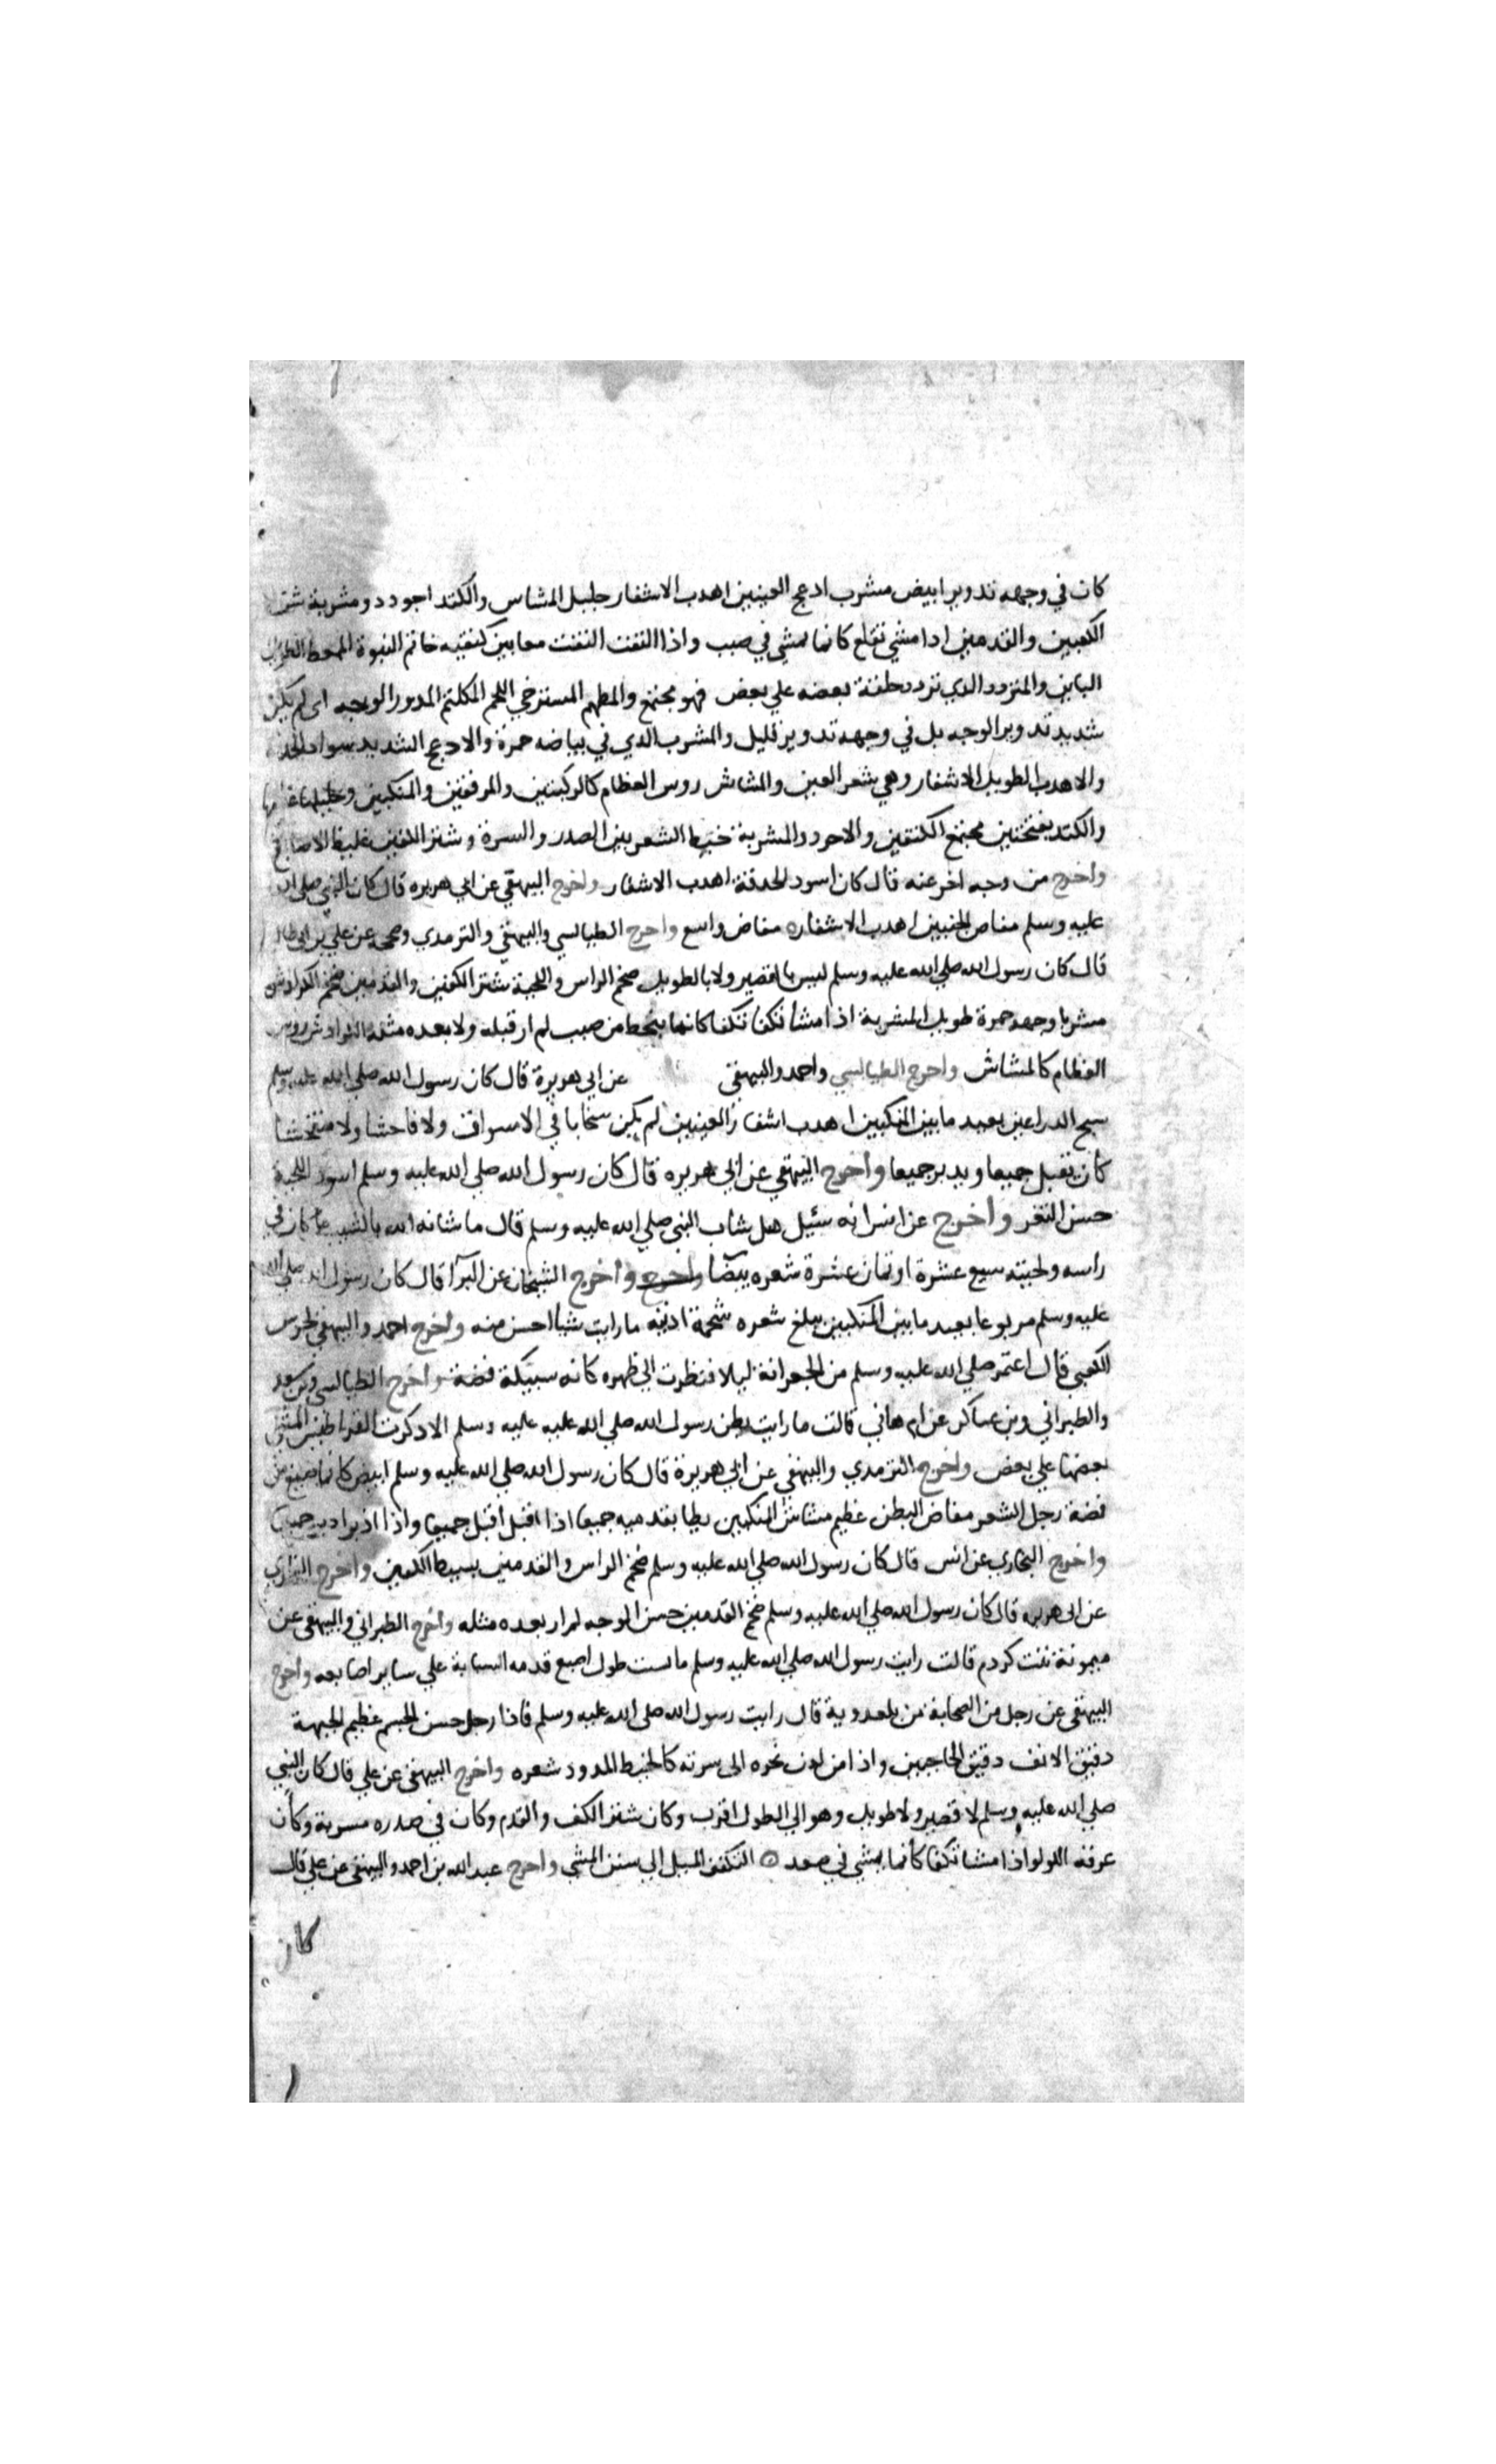 كان في وجهه تدوير ابيض مشرب ادعج العينين اهدب الاشفار جليل المشاس والكتد اجودد ومشربة شثن
الكعبين والقدمين ادا مشي تقلع كانما يمشي في صبب واذا التفت التفت معا بين كتفيه خاتم النبوة الممعط الطويل
الباين والمتردد الدي تردد خلقه بعضه علي بعض فهو مجتمع والمطهم المسترخي اللحم المكلثم المدور الوجه اى لم يكن
شديد تدوير الوجه بل في وجهه تدوير قليل والمشرب الدي في بياضه حمرة والادعج الشديد سواد الحد
والاهدب الطويل الاشفار وهي شعر العين والمشاش روس العظام كالركبتين والمرفقين والمنكبين وجليلها
والكتد بفتحتين مجتمع الكتفين والاحرد والمشربة خيط الشعر بين الصدر والسرة وشثن الكفين غليظ الاصابع
واخرج من وجه اخر عنه قال كان اسود الحدقة اهدب الاشفار واخرج البيهقي عن ابي هريره قال كان النبي صلى الله
عليه وسلم مفاض الجنبين اهدب الاشفاره مفاض واسع واخرج الطيالسي والبيهقي والترمدي وصححه عن علي بن ابي طالب
قال كان رسول الله صلي الله عليه وسلم ليس بالقصير ولا بالطويل ضخم الراس واللحية شثن الكفين والقدمين ضخم الكراديش
مشربا وجهه حمرة طويل المشربة اذا مشا تكفا تكفا كانما ينحط من صبب لم ار قبله ولا بعده مثله الكراديش روس
العظام كالمشاش واخرج الطيالسي واحمد والبيهقي عن ابي هريرة قال كان رسول الله صلي الله عليه وسلم
سبح الدراعين بعيد ما بين المنكبين اهدب اشفار العينين لم يكن سخابا في الاسواق ولا فاحشا ولا متفحشا
كان يقبل جميعا ويدبر جميعا واخرج البيهقي عن ابي هريره قال كان رسول الله صلي الله عليه وسلم اسود اللحية
حسن الثغر واخرج عن انس انه سئيل هل شاب النبي صلي الله عليه وسلم قال ما شانه الله بالشيب ما كان في
راسه ولحيته سبع عشرة او ثمان عشرة شعره بيضا واخرج واخرج الشيخان عن البرآ قال كان رسول الله صلي الله
عليه وسلم مربوعا بعيد ما بين المنكبين يبلغ شعره شحمة اذنيه ما رايت شيا احسن منه واخرج احمد والبيهقي
الكعبي قال اعتمر صلي الله عليه وسلم من الجعرانة ليلا فنظرت الي ظهره كانه سبيكة فضة واخرج الطيالسي وبن سعد
والطبراني وبن عساكر عن ام هاني قالت ما رايت بطن رسول الله صلي الله عليه عليه وسلم الا دكرت القراطيس المثني
بعضها علي بعض واخرج الترمدي والبيهقي عن ابي هريرة قال كان رسول الله صلي الله عليه وسلم ابيض كانما صيغ من
فضة رجل الشعر مفاض البطن عظيم مشاش المنكبين يطا بقدميه جميعا اذا اقبل اقبل جميعا واذا ادبر ادبر جميعا
واخرج البخاري عن انس قال كان رسول الله صلي الله عليه وسلم ضخم الراس والقدمين بسيط الكفين واخرج البخاري
عن ابي هريره قال كان رسول الله صلي الله عليه وسلم ضخم القدمين حسن الوجه لم ار بعده مثله واخرج الطبراني والبيهقي عن
ميمونة بنت كردم قالت رايت رسول الله صلي الله عليه وسلم ما لست طول اصبع قدمه السبابة علي ساير اصابعه واخرج
البيهقي عن رجل من الصحابة من بلعدوية قال رايت رسول الله صلي الله عليه وسلم فاذا رجل حسن الجسم عظيم الجبهة
دقيق الانف دقيق الحاجبين واذا من لدن نحره الى سرته كالخيط المدود شعره واخرج البيهقي عن علي قال كان النبي
صلي الله عليه وسلم لا قصير ولا طويل وهو الي الطول اقرب وكان شثن الكف والقدم وكان في صدره مسربة وكان
عرقه اللولو اذا مشا تكفا كانما يمشي في صعد التكفؤ الميل الي سنن المشي واخرج عبد الله بن احمد والبيهقي عن علي قال
كان